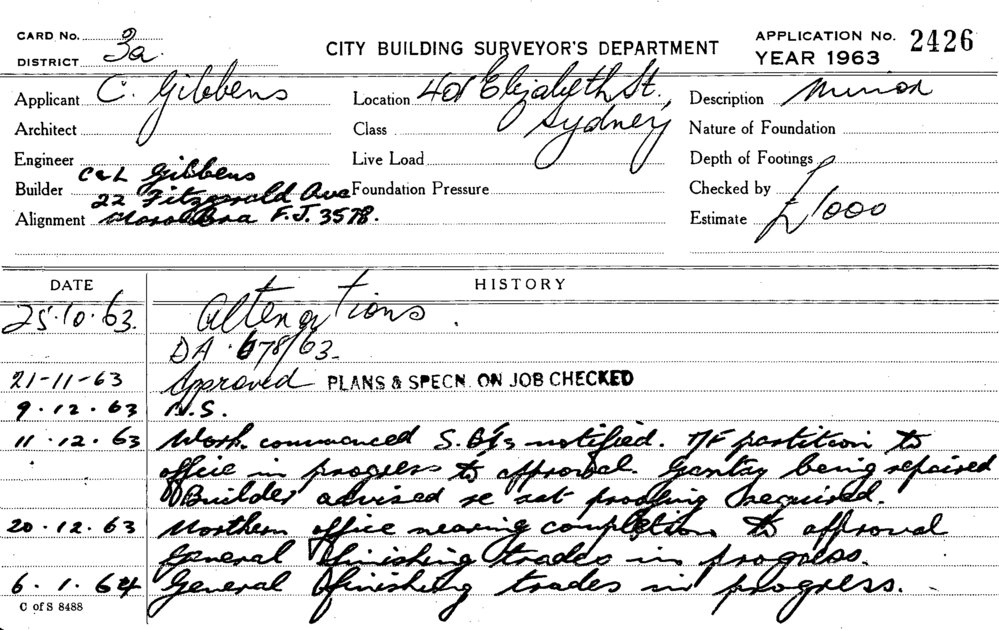 CARD No. 3a.
DISTRICT
CITY BUILDING SURVEYOR'S DEPARTMENT
APPLICATION No. 2426
YEAR 1963
Applicant C. Gibbens
Location 401 Elizabeth St,
Sydney
Description Minor
Architect
Class
Nature of Foundation
Engineer
Live Load
Depth of Footings
Builder C & L Gibbens
22 Fitzgerald Ave
F.J. 3578.
Foundation Pressure
Checked by
Alignment
Estimate £1000
DATE HISTORY
25.10.63. Alterations.
DA. 678/63.
21-11-63 Approved PLANS & SPECN. ON JOB CHECKED
9.12.63 N.S.
11.12.63 Work commenced notified. partition to
office in progress to approval. Gantry being repaired
Builder advised re rat proofing required.
20.12.63 Northern office nearing completion to approval
General finishing trades in progress.
6.1.64 General finishing trades in progress.
C of S 8488